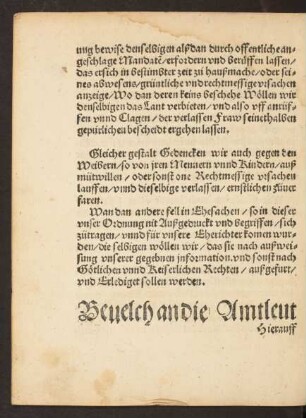 ung beweise denselbigen alßdan durch offentliche an-
geschlage Mandatē/erfordern vnd berüffen lassen/
das er sich in bestimbter zeit zu hauß mache/oder sei-
nes abwesens/gründtliche vnd rechtmessige vrsachen
anzeigt/Wo dan deren keins beschehe Wöllen wir
denselbigen das Lant verbieten/vnd also vff anrüf-
fen vnnd Clagen/der verlassen Fraw seinethalben
gepürlichen bescheidt ergehen lassen.
Gleicher gestalt Gedencken wir auch gegen den
Weibern/so von jren Mennern vnnd Kindern/auß
mütwillen/oder sonst one Rechtmessige vrsachen
lauffen/vnnd dieselbige verlassen/ernstlichen zuuer
faren.
Wan dan andere fell in Ehesachen/so in dieser
vnser Ordnung nit Außgedruckt vnd begriffen/sich
zůtragen/vnnd für vnsere Eherichter komen wur-
den/die selbigen wöllen wir/das sie nach außwei-
sung vnserer gegebnen information.vnd sonst nach
Götlichen vnnd Keiserlichen Rechten/außgefürt/
vnd Erlediget sollen werden.
Beuelch an die Amtleut
Hierauff